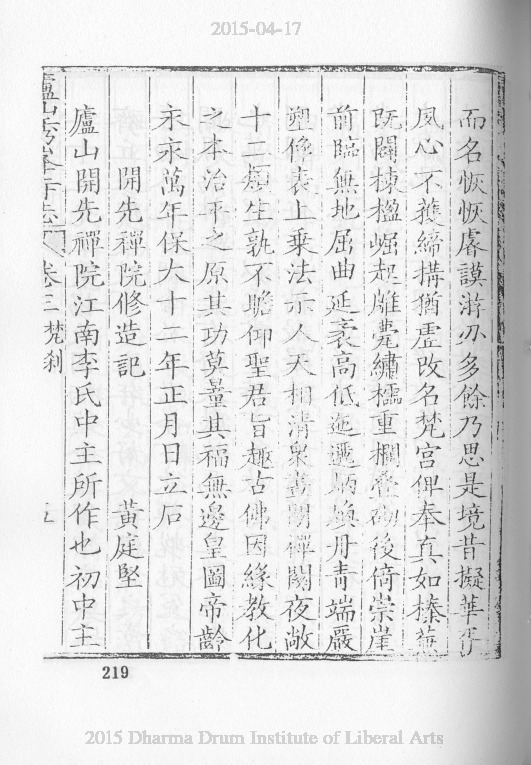 2015-04-17
而名恢恢睿謨游刃多餘乃思是境昔擬華
夙心不獲締搆猶虛改名梵宮俾奉真如榛
既闢棟楹崛起雕甍繡櫺重欄疊砌後倚崇崖
前臨無地屈曲延袤高低迤邐丹青端嚴
塑像表上乘法示人天相清眾開禪關夜敞
十二類生孰不瞻仰聖君旨趣古佛因緣教化
之本治平之原其功莫量其福無邊皇圖帝齡
永永萬年保大十二年正月日立石
開先禪院修造記 黃庭堅
廬山開先禪院江南李氏中主所作也初中主
廬山秀峰寺志 卷三 梵刹 五
219
2015 Dharma Drum Institute of Liberal Arts